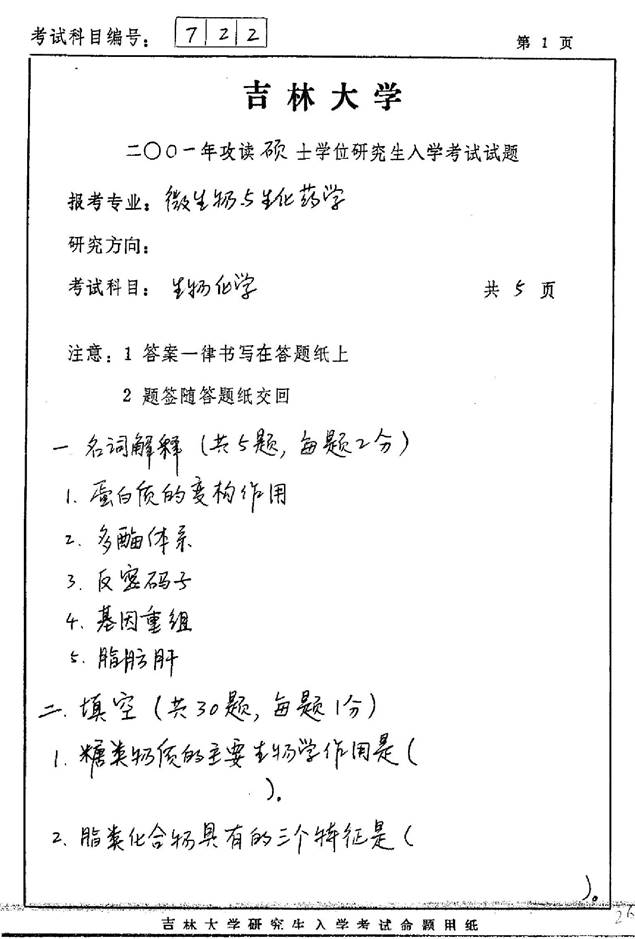 考试科目编号： 7 2 2
第 1 页
吉林大学
二〇〇一年攻读 硕 士学位研究生入学考试试题
报考专业：微生物与生化药学
研究方向：
考试科目： 生物化学 共 5 页
注意：1 答案一律书写在答题纸上
2 题签随答题纸交回
一 名词解释（共5题，每题2分）
1. 蛋白质的变构作用
2. 多酶体系
3. 反密码子
4. 基因重组
5. 脂肪肝
二. 填空（共30题，每题1分）
1. 糖类物质的主要生物学作用是（
）。
2. 脂类化合物具有的三个特征是（
）。
26
吉林大学研究生入学考试命题用纸